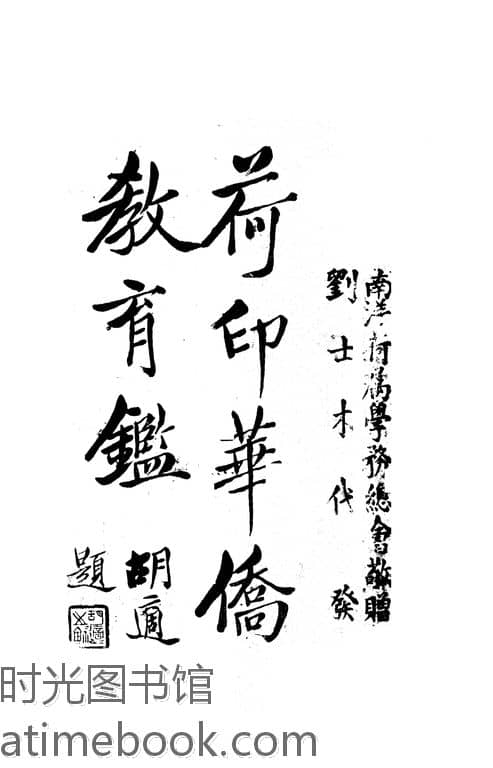 南洋荷屬學務總會敬贈
劉士木代發
荷印華僑
教育鑑
胡適
題
时光图书馆
atimebook.com